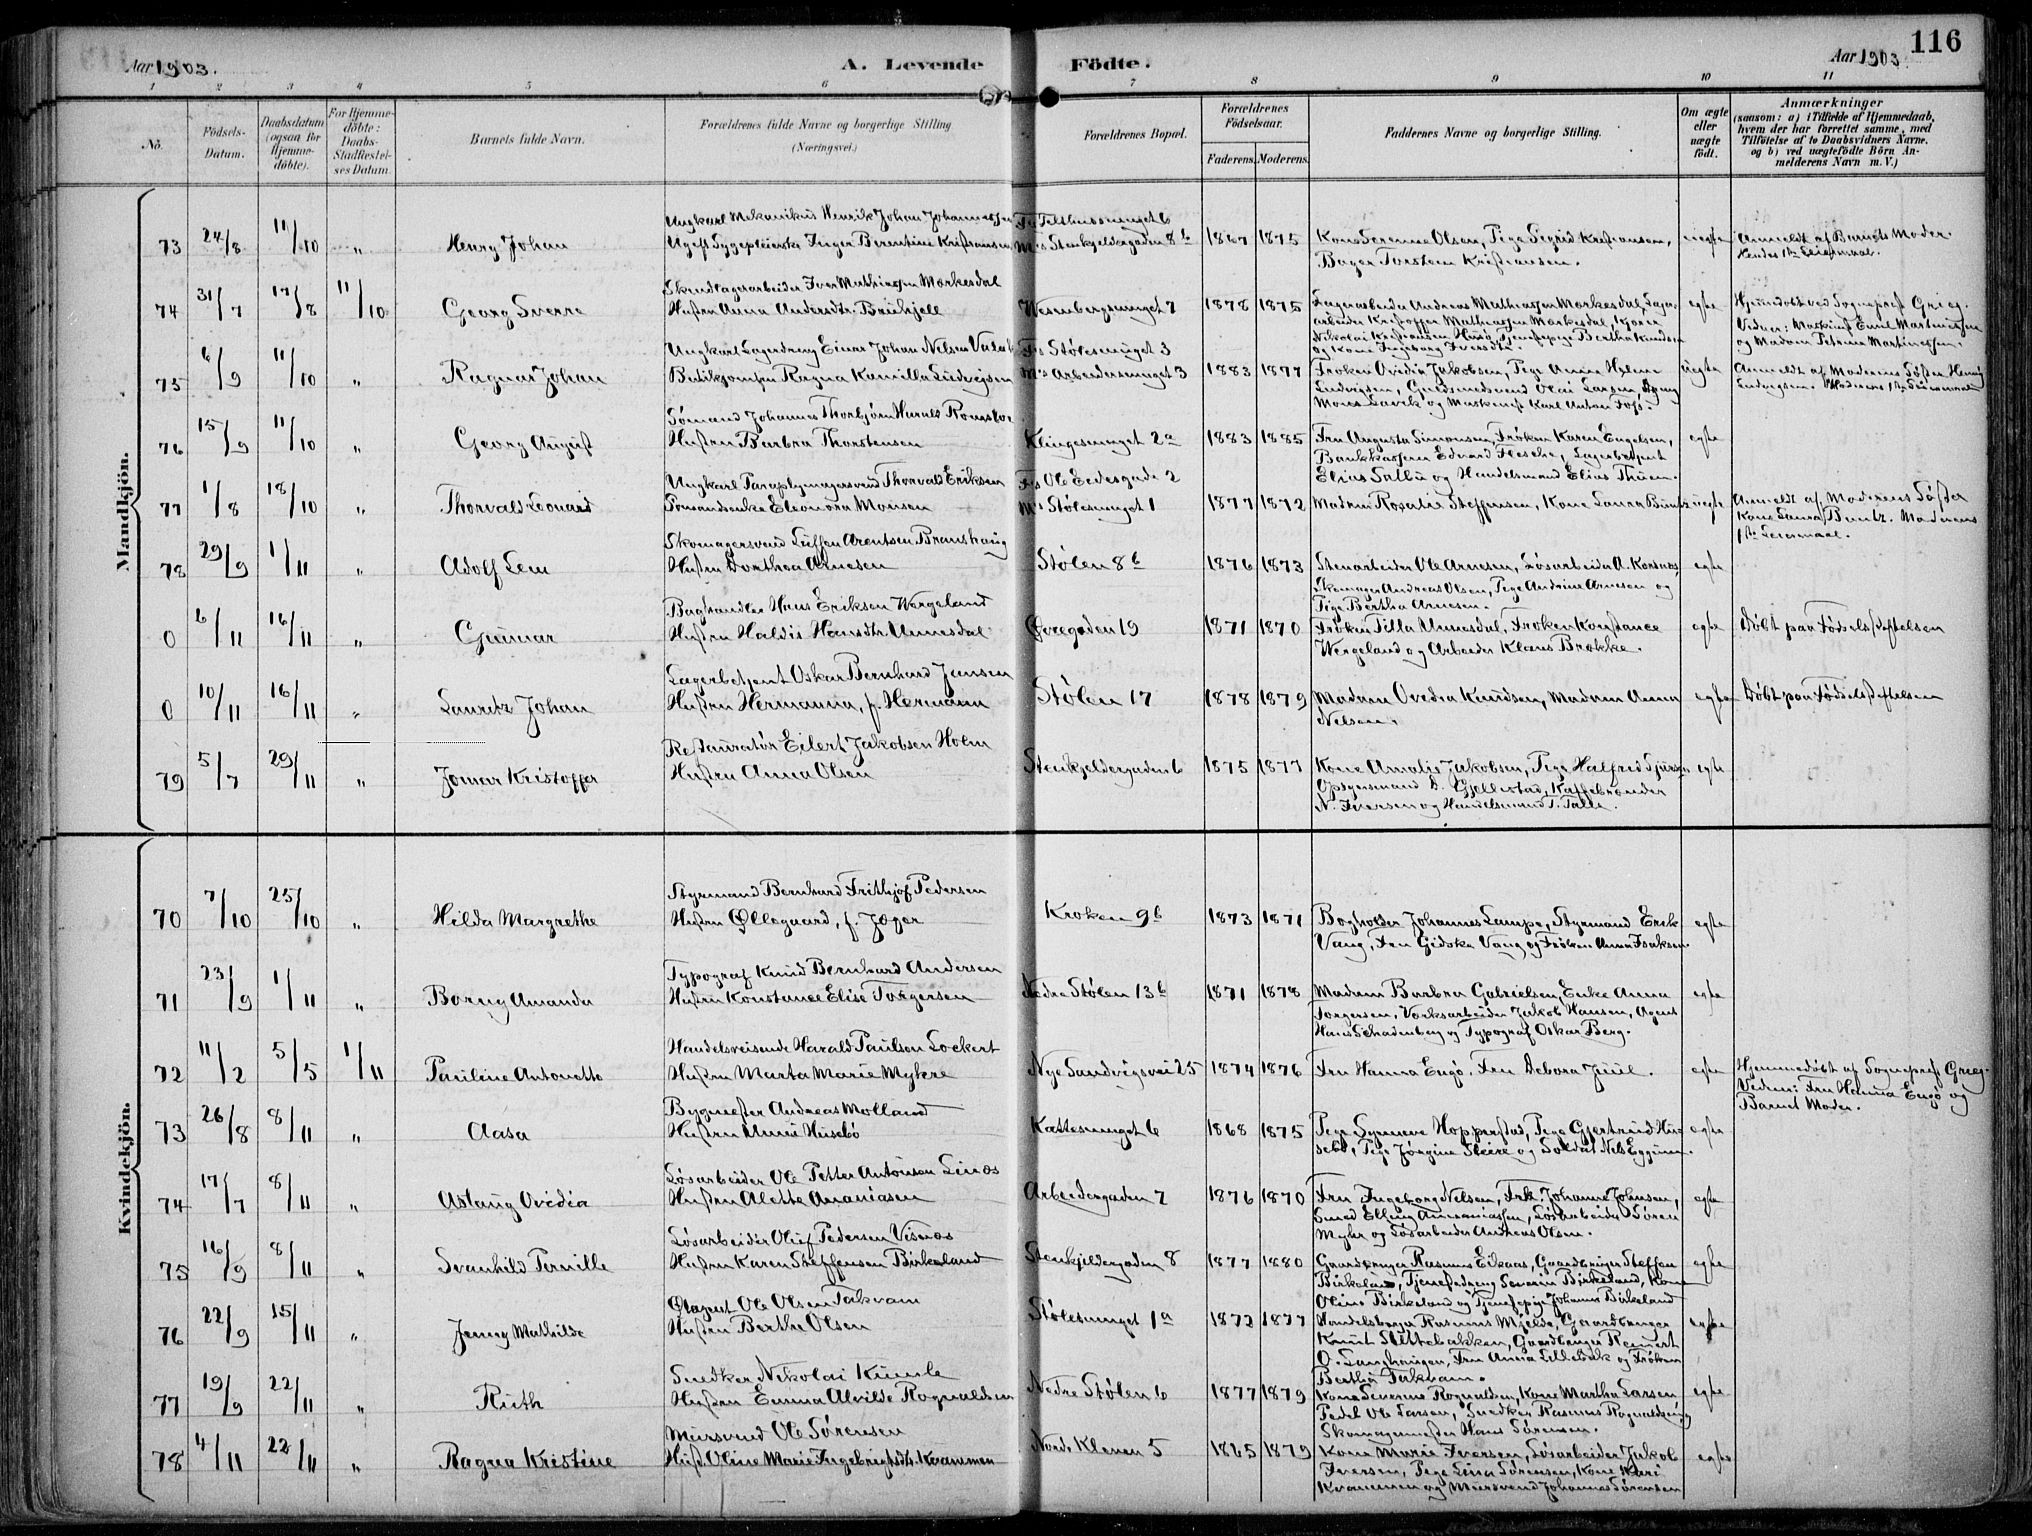 116
Aar 1903. A. Levende Födte. Aar 1903.
1 2 3 4 5 6 7 8 9 10 11
No.
Födsels-Datum.
Daabsdatum (ogsaa for Hjemme-döbte).
For Hjemme-döbte: Daabs-Stadfæstel-ses Datum.
Barnets fulde Navn.
Forældrenes fulde Navne og borgerlige Stilling (Næringsvei.)
Forældrenes Bopæl.
Forældrenes Födselsaar.
Faderens. Moderens.
Faddernes Navne og borgerlige Stilling.
Om ægte eller uægte födt.
Anmærkninger
(saasom: a) i Tilfælde af Hjemmedaab, hvem der har forrettet samme, med Tilföielse af to Daabsvidners Navne, og b) ved uægtefödte Börn An-melderens Navn m. V.)
Mandkjön.
73 24/8 11/10 " Henry Johan
Ungkarl Mekanikus Henrik Johan Johannessen
Ugift Sygepleierske Inger Berentine Kristiansen
Ms Stenkjeldergaden 8b 1867 1875
Kone Serenne Olsen, Pige Sigrid Kristiansen,
Bager Torstein Kristiansen.
uegte
Anmeldt af Barnets Moder.
Hendes 1te Leiermaal.
74 31/7 17/8 11/10 Georg Sverre
Iver Mathiassen Mørkesdal
Hustru Anna Andersdtr.
Wesenbergsmuget 7 1878 1875
Lagerarbeider Andreas Mathiassen Mørkesdal, Lager-
arbeider Kristoffer Mathiassen Mørkesdal, Kjører
Nikolai Kristiansen Husø, Tjenestepige Bertha Knudsen
og Kone Ingeborg Iversdtr.
egte
Hjemdøbt ved Sogneprest Grieg.
Vidner: Maskinist Emil Martinussen
og Madam Petrina Martinussen.
75 6/9 11/10 " Ragnar Johan
Ungkarl Lagerdreng Einar Johan Nelsen
Butikjomfru Ragna Kamilla Ludvigsen
Fs Stølesmuget 3
Ms Arbeidersmuget 3 1883 1877
Frøken Ovidia Jakobsen, Pige Anna Helene
Ludvigsen, Guldsmedsvend Olai Larsen,
Mons Lavik og Maskinist Karl Anton Foss.
uegte
Anmeldt af Moderens Søster Henny
Ludvigsen. Moderens 1te Leiermaal
76 15/9 11/10 " Georg August
Sømand Johannes Thorbjørn
Hustru Barbra Thorstensen
Klingesmuget 2a 1883 1885
Fru Augusta Simonsen, Frøken Karen Engelsen,
Bankkasserer Edvard Flesche, Lagerbetjent
Elias Sælø og Handelsmand Elias Thuen.
egte
77 1/8 18/10 " Thorvald Leonard
Ungkarl Paraplymagersvend Thorvald Eriksen
Eleonora Monsen
Fs Ole Eedesgade 2
Ms Stølesmuget 1 1877 1872
Madam Rosalie Steffensen, Kone Laura Buntz
uegte
Anmeldt af Moderens Søster
Kone Laura Buntz. Moderens
1te Leiermaal.
78 29/9 1/11 " Adolf Lem
Skomagersvend Steffen Arentsen Bronshaug
Hustru Dorthea Arnesen
Stølen 8b 1876 1873
Stenarbeider Ole Arnesen, Løsarbeider A. Korsnes
Skomager Andreas Olsen, Pige Andrine Arnesen og
Pige Bertha Arnesen.
egte
0 6/11 16/11 " Gunnar
Boghandler Hans Eriksen Wergeland
Hustru Haldis Hansdtr. Unnesdal
Øvregaden 19 1871 1870
Frøken Tilla Unnesdal, Frøken Konstance
Wergeland og Arbeider Klaus Brekke.
egte
Døbt paa Fødselsstiftelsen
0 10/11 16/11 " Lauritz Johan
Lagerbetjent Oskar Bernhard Jensen
Hustru Hermanna, f. Hermann
Stølen 17 1878 1879
Madam Ovedia Knudsen, Madam Anna
Nelsen.
egte
Døbt paa Fødselsstiftelsen
79 5/7 29/11 " Jomar Kristoffer
Restauratør Eilert Jakobsen Holm
Hustru Anna Olsen
Stenkjeldergaden 6 1875 1877
Kone Amalie Jakobsen, Pige Halfrid Sjursen
Opsynsmand D. Gjellestad, Kaffebrænder
N. Iversen og Handelsmand T. Talle.
egte
Kvindekjön.
70 7/10 25/10 " Hilda Margrethe
Styrmand Bernhard Frithjof Pedersen
Hustru Øllegaard, f. Jæger
Kroken 9b 1873 1871
Bogholder Johannes Lampe, Styrmand Erik
Vang, Fru Gidske Vang og Frøken Anna Isaksen.
egte
71 23/9 1/11 " Borny Amanda
Typograf Knud Bernhard Andersen
Hustru Konstance Elise Torgersen
Nedre Stølen 13b 1871 1878
Madam Barbra Gabrielsen, Enke Anna
Torgersen, Værksarbeider Jakob Hansen, Agent
Hans Schadenberg og Typograf Oskar Berg.
egte
72 11/2 5/5 1/11 Pauline Antonette
Handelsreisende Harald Paulson Lockert
Hustru Marta Marie Mykre
Nye Sandvigsvei 25 1874 1876
Fru Hanna Engø, Fru Debora Juul.
egte
Hjemmedøbt af Sogneprest Grieg.
Vidner: Fru Hanna Engø og
Barnets Moder.
73 26/8 8/11 " Aasa
Bygmester Andreas Molland
Hustru Anni Husebø
Kattesmuget 6 1868 1875
Pige Synneve Hopperstad, Pige Gjertrud Hu-
sebø, Pige Jørgine Skeie og Soldat Nels Eggum.
egte
74 17/7 8/11 " Aslaug Ovidia
Løsarbeider Ole Petter Antonsen Lines
Hustru Alette Ananiasen
Arbeidergaden 7 1876 1870
Fru Ingeborg Nelsen, Frk. Johanne Johnsen,
Smed Elling Ananiassen, Løsarbeider Søren
Myhr og Løsarbeider Andreas Olsen.
egte
75 16/9 8/11 " Svanhild Pernille
Løsarbeider Oluf Pedersen Visnes
Hustru Karen Steffensen Birkeland
Stenkjeldergaden 8 1877 1880
Gaardbruger Rasmus Eikaas, Gaardbruger Steffen
Birkeland, Tjenestedreng Severin Birkeland, Kone
Oline Birkeland og Tjenestepige Johanna Birkeland
egte
76 22/9 15/11 " Jenny Mathilde
Ole Olsen Takvam
Hustru Bertha Olsen
Stølesmuget 1a 1872 1877
Handelsborger Rasmus Mjelde, Gaardbruger
Knut Slettebakken, Gaardbruger Reinert
O. Langhaugen, Fru Anna Lillebak og Frøken
Bertha Takvam.
egte
77 19/9 22/11 " Ruth
Snedker Nikolai Kumle
Hustru Emma Alvilde Rognaldsen
Nedre Stølen 6 1877 1879
Kone Severine Rognaldsen, Kone Martha Larsen
Pedel Ole Larsen, Snedker Rasmus Rognaldsen og
Skomagermester Hans Sørensen.
egte
78 4/11 22/11 " Ragna Kristine
Mursvend Ole Sørensen
Hust. Oline Marie Ingebrigtsdtr. Krammen
Nordre Kleven 5 1865 1879
Kone Marie Iversen, Løsarbeider Jakob
Iversen, Pige Lina Sørensen, Kone Kari
Krammen og Mursvend Johannes Sørensen
egte